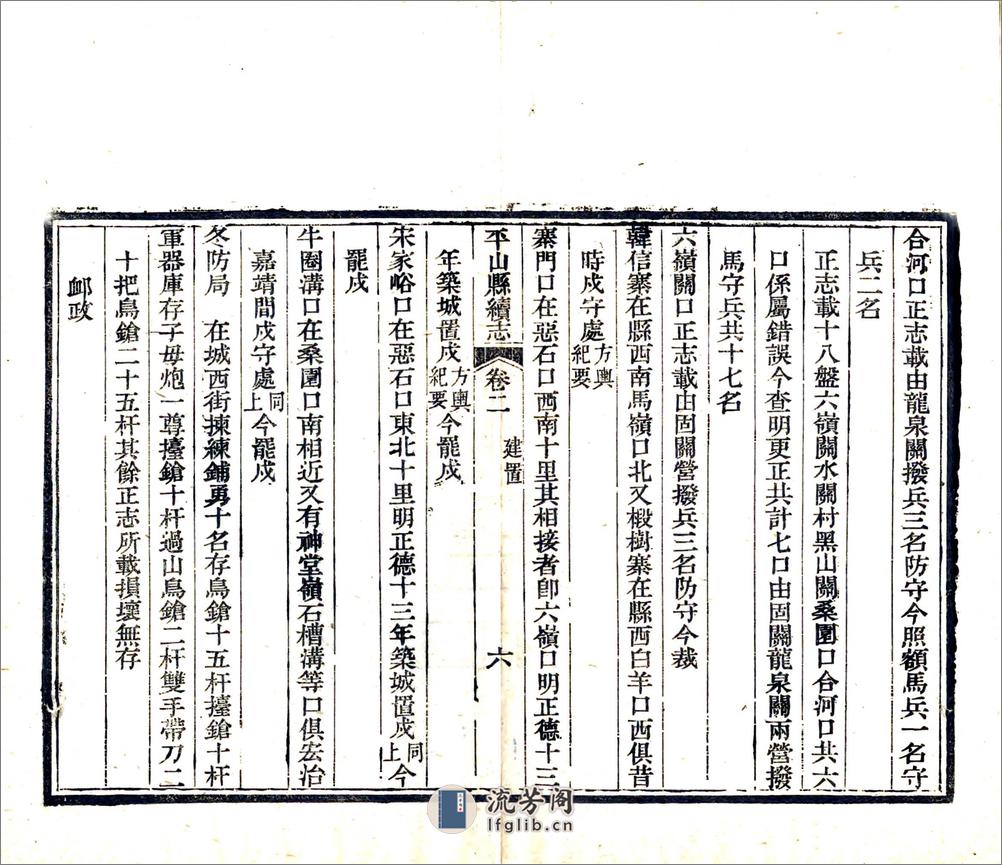 合河口正志載由龍泉關撥兵三名防守今照額馬兵一名守
兵二名
正志載十八盤六嶺關水關村黑山關桑園口合河口共六
口係屬錯誤今查明更正共計七口由固關龍泉關兩營撥
馬守兵共十七名
六嶺關口正志載由固關營撥兵三名防守今裁
韓信寨在縣西南馬嶺口北又椴樹寨在縣西白羊口西俱昔
時戍守處方輿紀要
寨門口在惡石口西南十里其相接者卽六嶺口明正德十三
平山縣續志 卷二 建置 六
年築城置戍方輿紀要今罷戍
宋家峪口在惡石口東北十里明正德十三年築城置戍同上今
罷戍
牛圈溝口在桑園口南相近又有神堂嶺石槽溝等口俱宏治
嘉靖間戍守處同上今罷戍
冬防局 在城西街揀練鋪勇十名存鳥鎗十五杆擡鎗十杆
軍器庫存子母炮一尊擡鎗十杆過山鳥鎗二杆雙手帶刀二
十把鳥鎗二十五杆其餘正志所載損壞無存
郵政
流芳阁
lfglib.cn